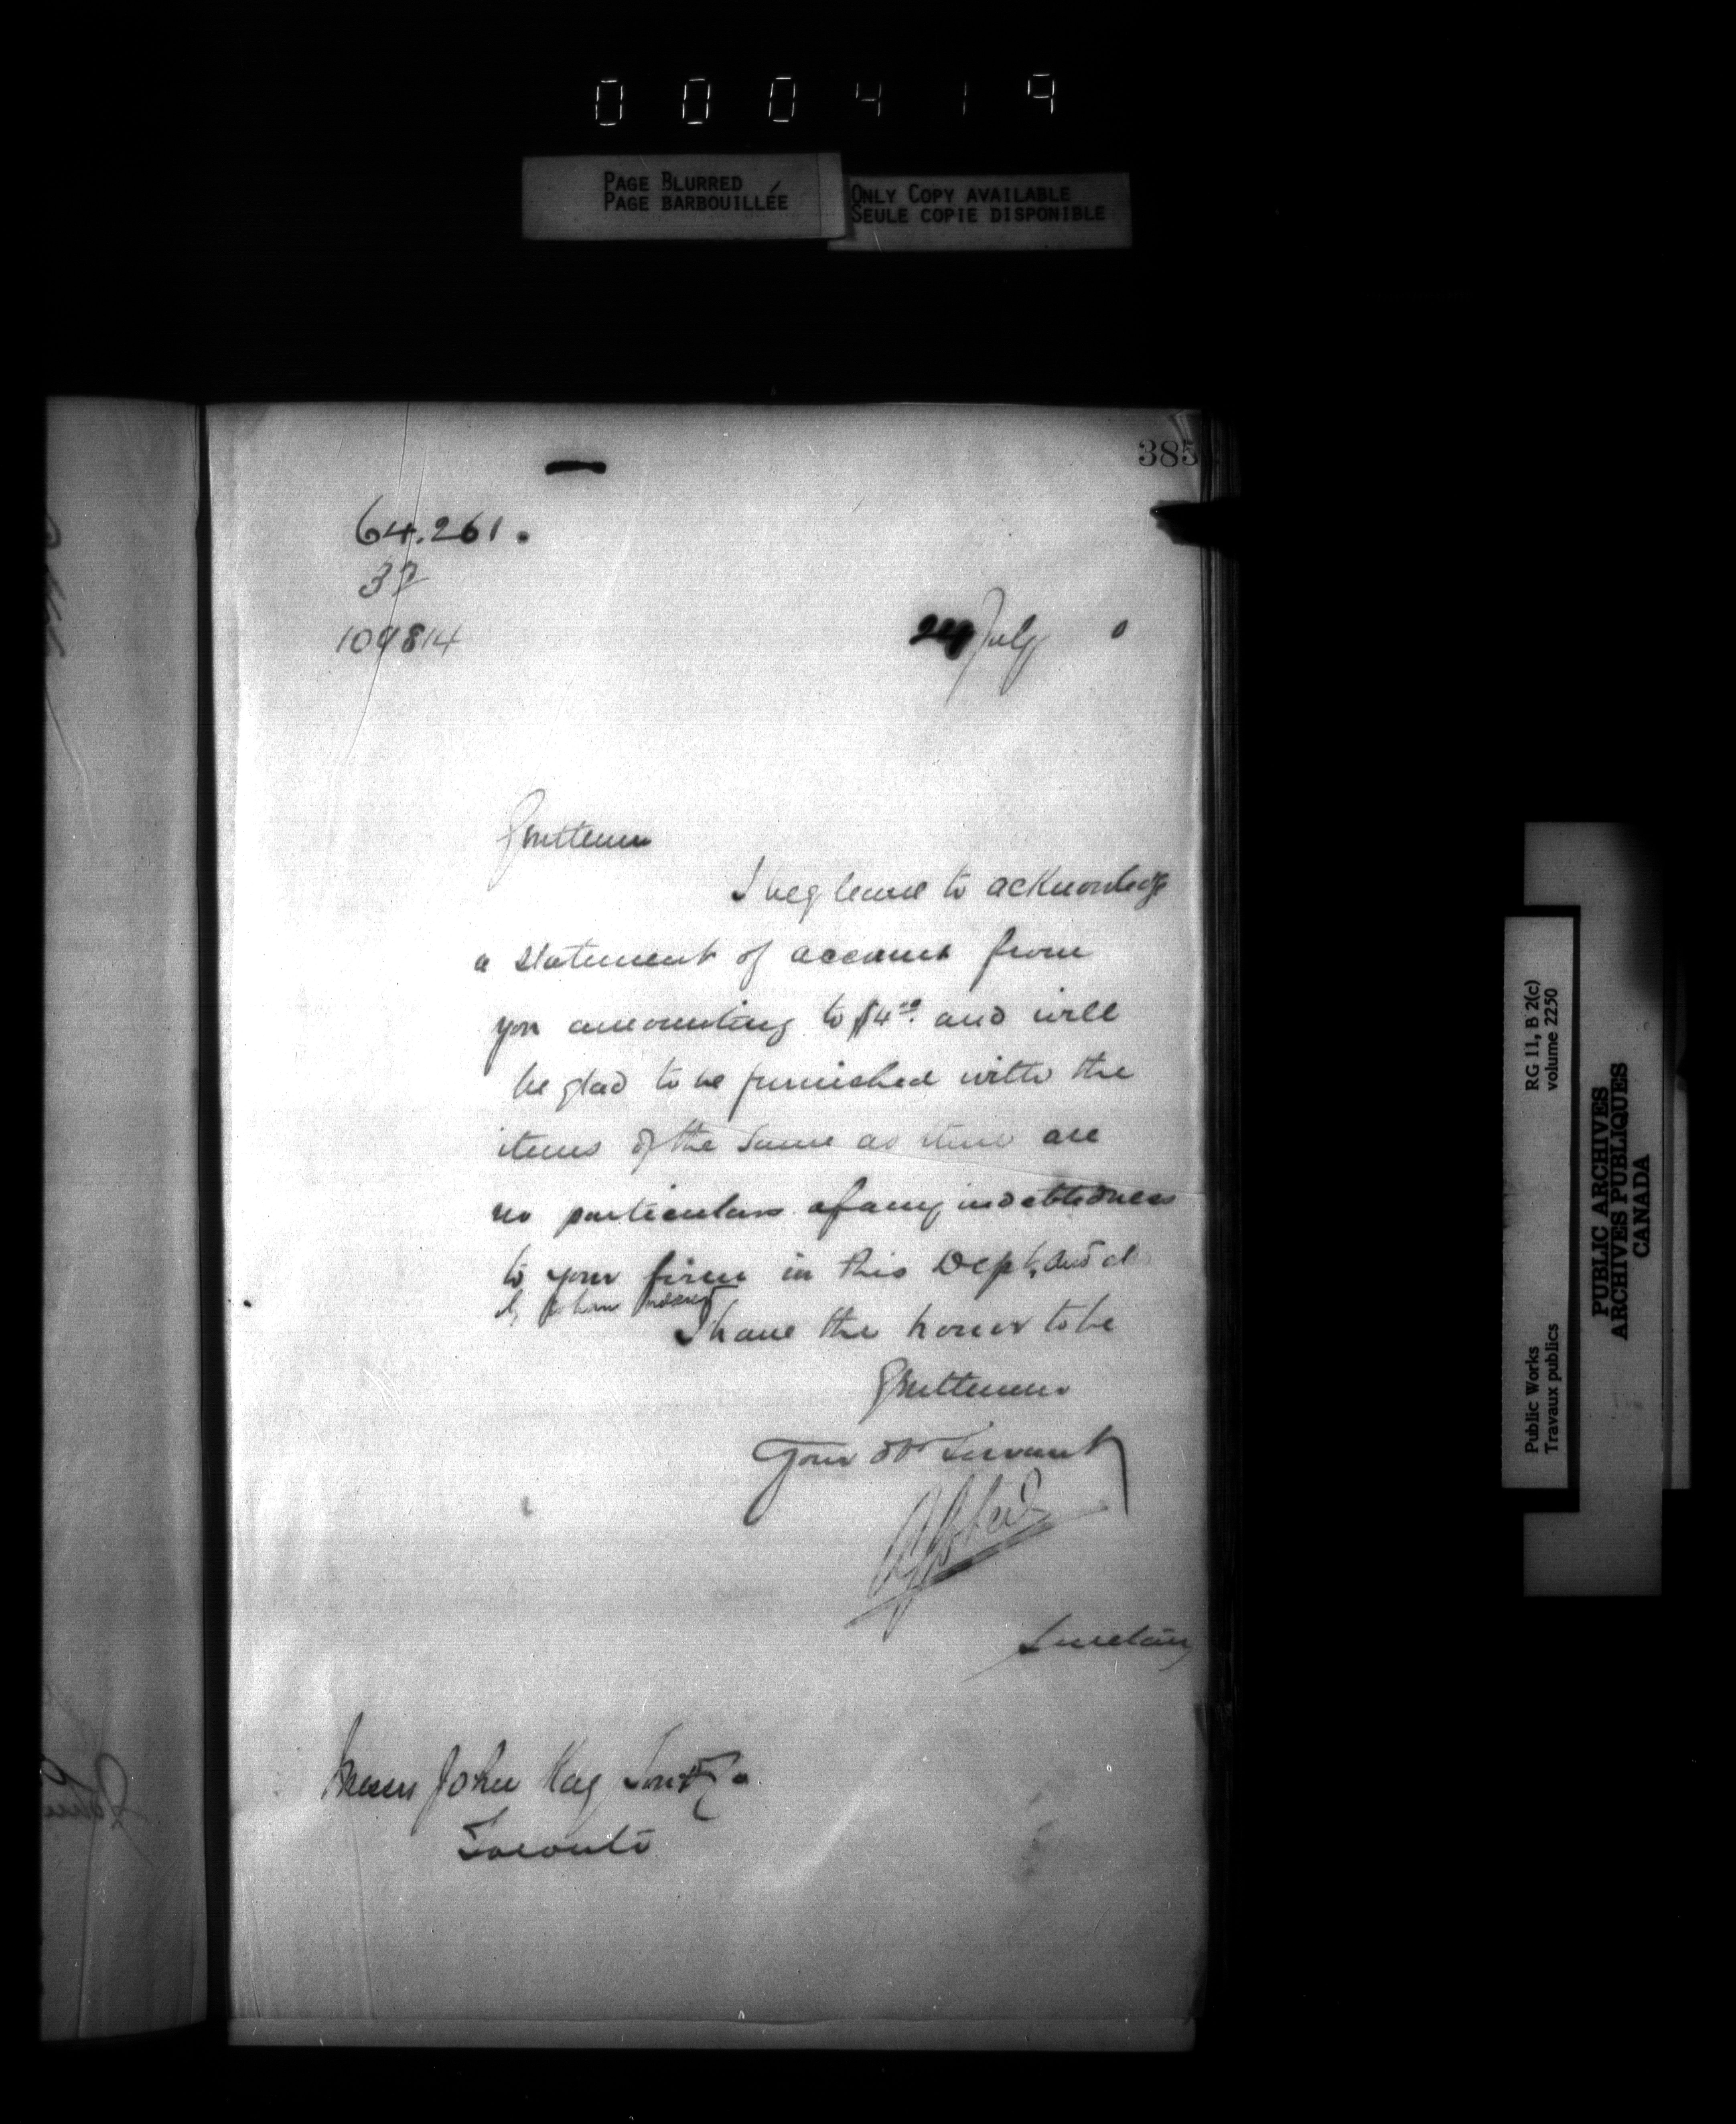 000419
PAGE BLURRED
PAGE BARBOUILLÉE
ONLY COPY AVAILABLE
SEULE COPIE DISPONIBLE
385
64.261.
37
109814
24 July 0
Gentlemen
I beg leave to acknowledge
a statement of account from
you amounting to $4.00 and will
be glad to be furnished with the
items of the same as there are
no particulars of any indebtedness
to your firm in this Dept. and
by whom
I have the honor to be
Gentlemen
Your Ob Servant
Secretary
Messrs John Kay Son & Co
Toronto
RG 11, B 2(c)
volume 2250
Public Works
Travaux publics
PUBLIC ARCHIVES
ARCHIVES PUBLIQUES
CANADA